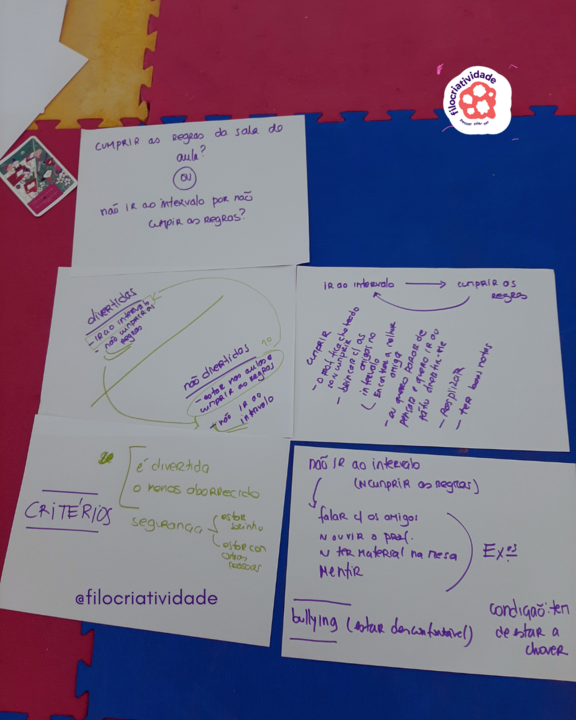 filocriatividade
CUMPRIR AS REGRAS DA SALA DE
AULA?
OU
NÃO IR AO INTERVALO POR NÃO
CUMPIR AS REGRAS?
divertidas
- IR AO INTERVALO
- NÃO CUMPRIR AS
REGRAS
não divertidas
- ESTAR NAS AULAS E
CUMPRIR AS REGRAS
- NÃO IR AO
INTERVALO
IR AO INTERVALO
CUMPRIR AS
REGRAS
CUMPRIR
- O PROF FICA CHATEADO
SE N CUMPRIR
- BRINCAR C/ AS
AMIGAS NO
INTERVALO
( ENCONTREI A MELHOR
AMIGA
- EU QUERO PARAR DE
PENSAR E QUERO IR AO
- TER BOAS NOTAS
CRITÉRIOS
é divertida
O MENOS ABORRECIDO
SEGURANÇA
ESTAR
SOZINHO
ESTAR COM
OUTRAS
PESSOAS
@filocriatividade
NÃO IR AO INTERVALO
(N CUMPRIR AS REGRAS)
FALAR C/ OS AMIGOS
N OUVIR O PROF.
N TER MATERIAL NA MESA
MENTIR
bullying (ESTAR DESCONFORTÁVEL)
CONDIÇÃO: TEM
DE ESTAR A
CHOVER